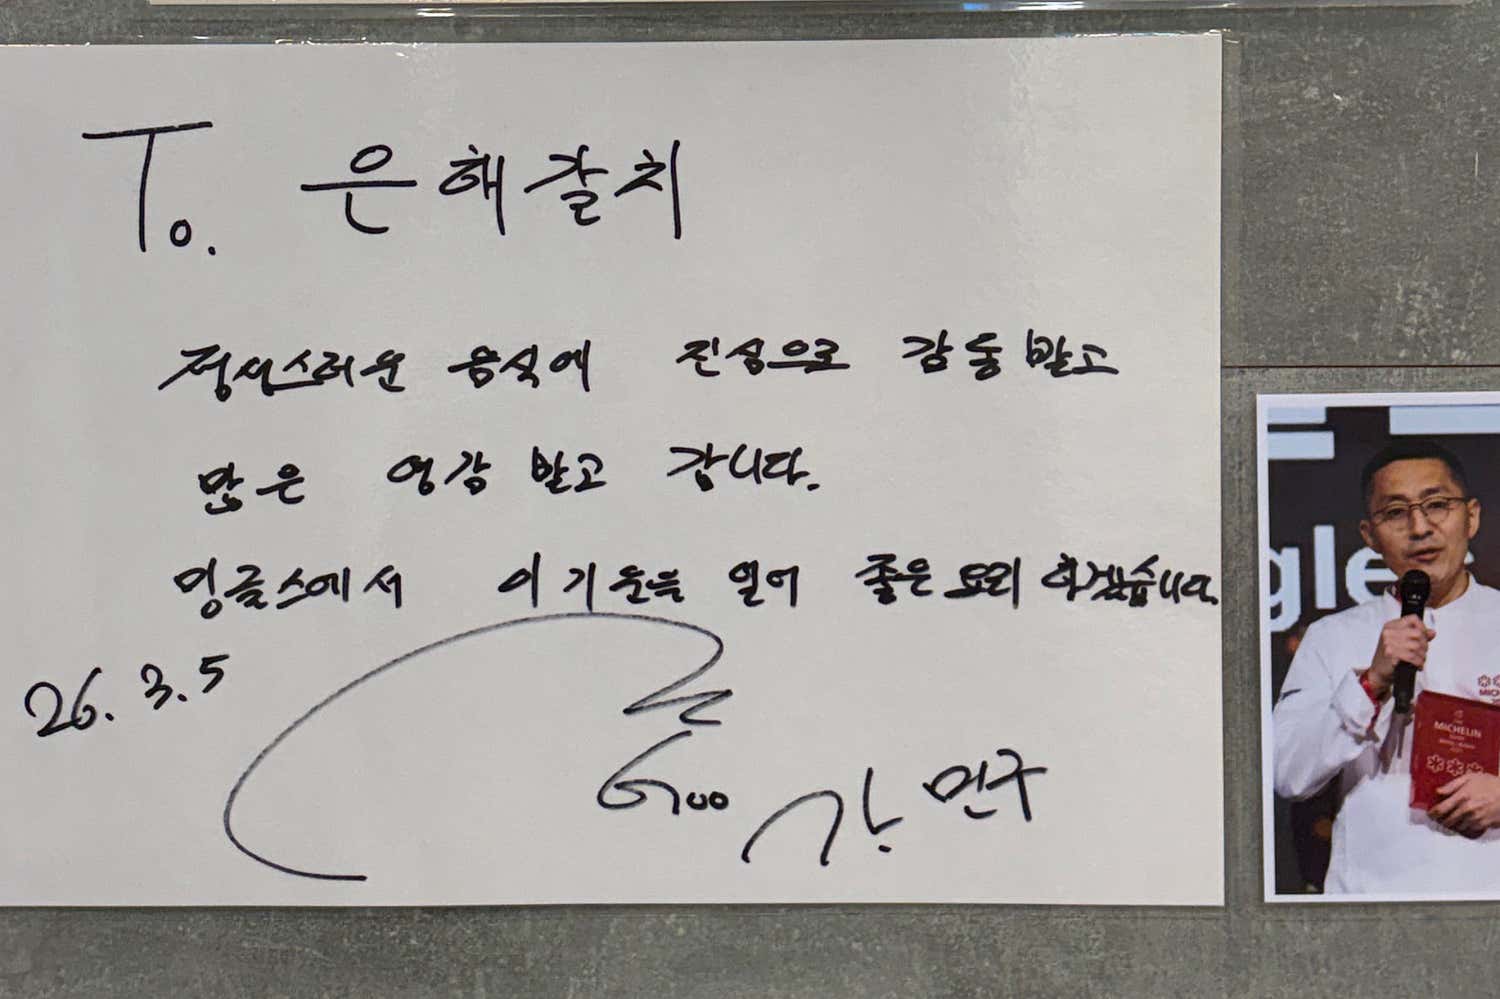 To. 은해갈치
정성스러운 음식에 진심으로 감동 받고
많은 영감 받고 갑니다.
밍글스에서 이 기운을 얻어 좋은 요리 하겠습니다.
26. 3. 5
Goo 강민구
gles
MICHELIN